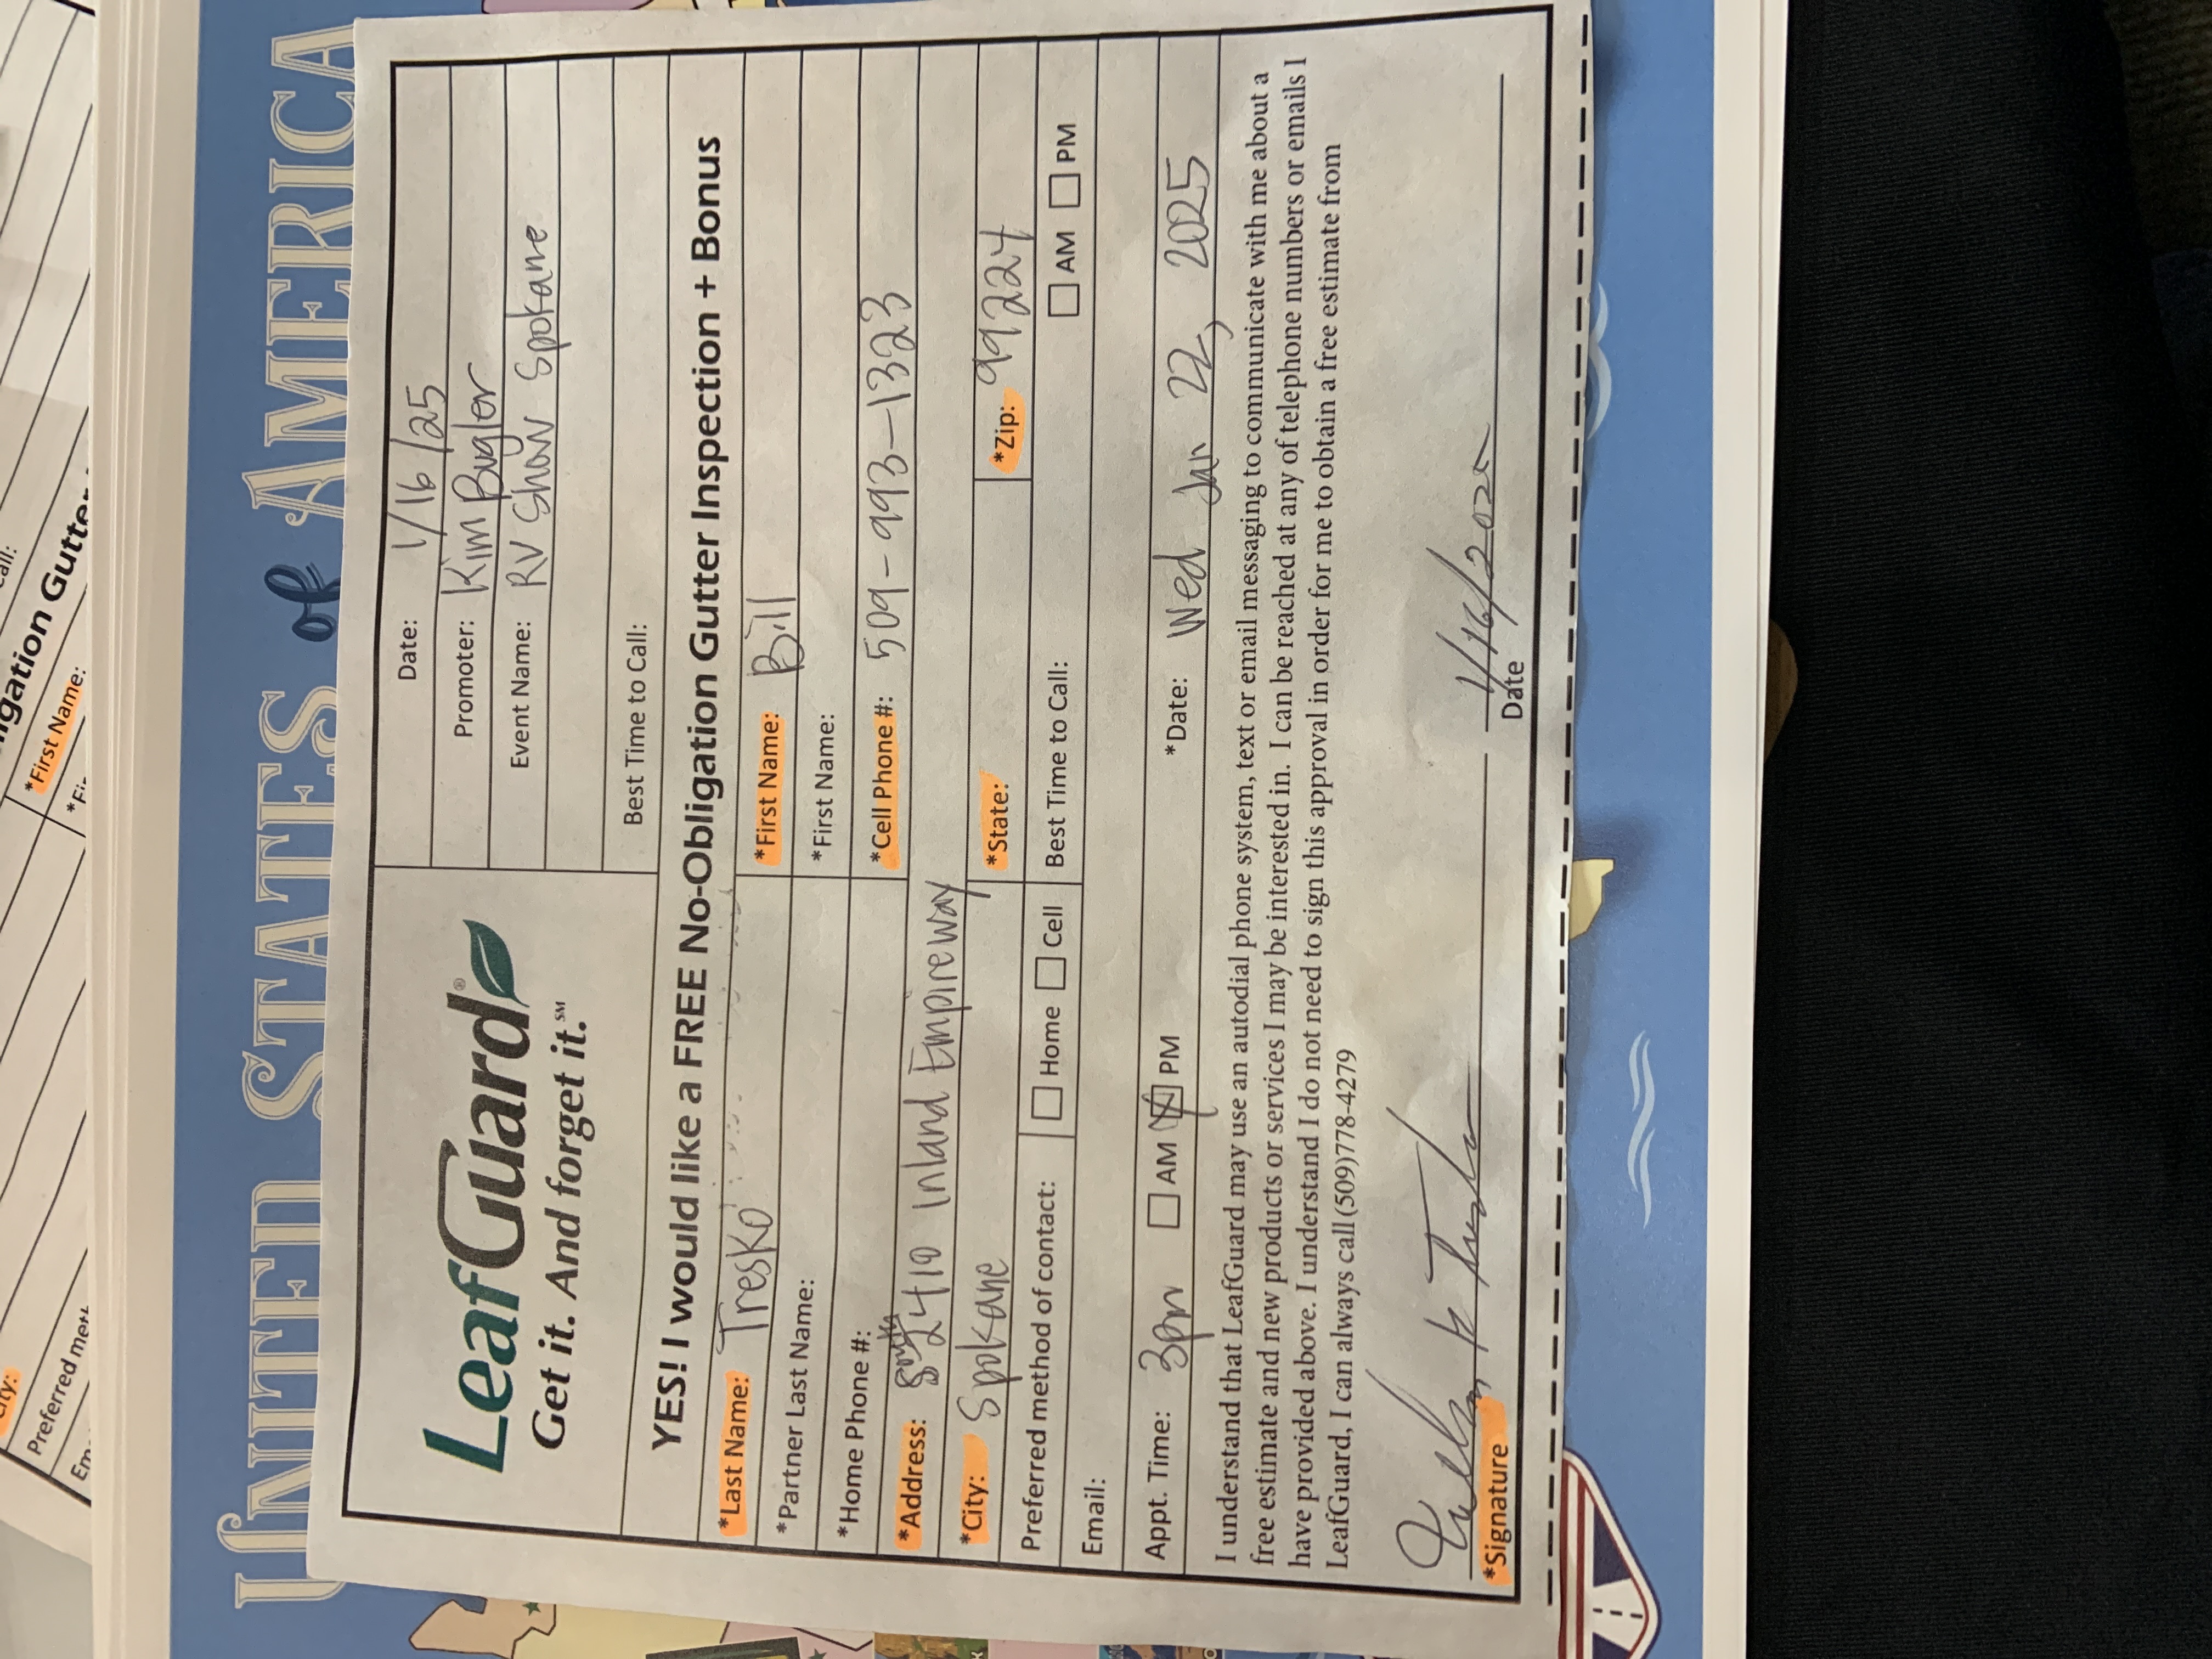 City:
Preferred meth
Em
igation Gutter
*First Name:
*Fir
Call:
UNITED STATES of AMERICA
LeafGuard®
Get it. And forget it.℠
Date: 1/16/25
Promoter: Kim Bugler
Event Name: RV Show Spokane
Best Time to Call:
YES! I would like a FREE No-Obligation Gutter Inspection + Bonus
*Last Name: Tresko
*First Name: Bill
*Partner Last Name:
*First Name:
*Home Phone #:
*Cell Phone #: 509-993-1323
*Address: South 2410 Inland Empire way
*City: Spokane
*State:
*Zip: 99224
Preferred method of contact: Home Cell
Best Time to Call: AM PM
Email:
Appt. Time: 3pm AM PM
*Date: Wed Jan 22, 2025
I understand that LeafGuard may use an autodial phone system, text or email messaging to communicate with me about a
free estimate and new products or services I may be interested in. I can be reached at any of telephone numbers or emails I
have provided above. I understand I do not need to sign this approval in order for me to obtain a free estimate from
LeafGuard, I can always call (509)778-4279
1/16/2025
*Signature
Date